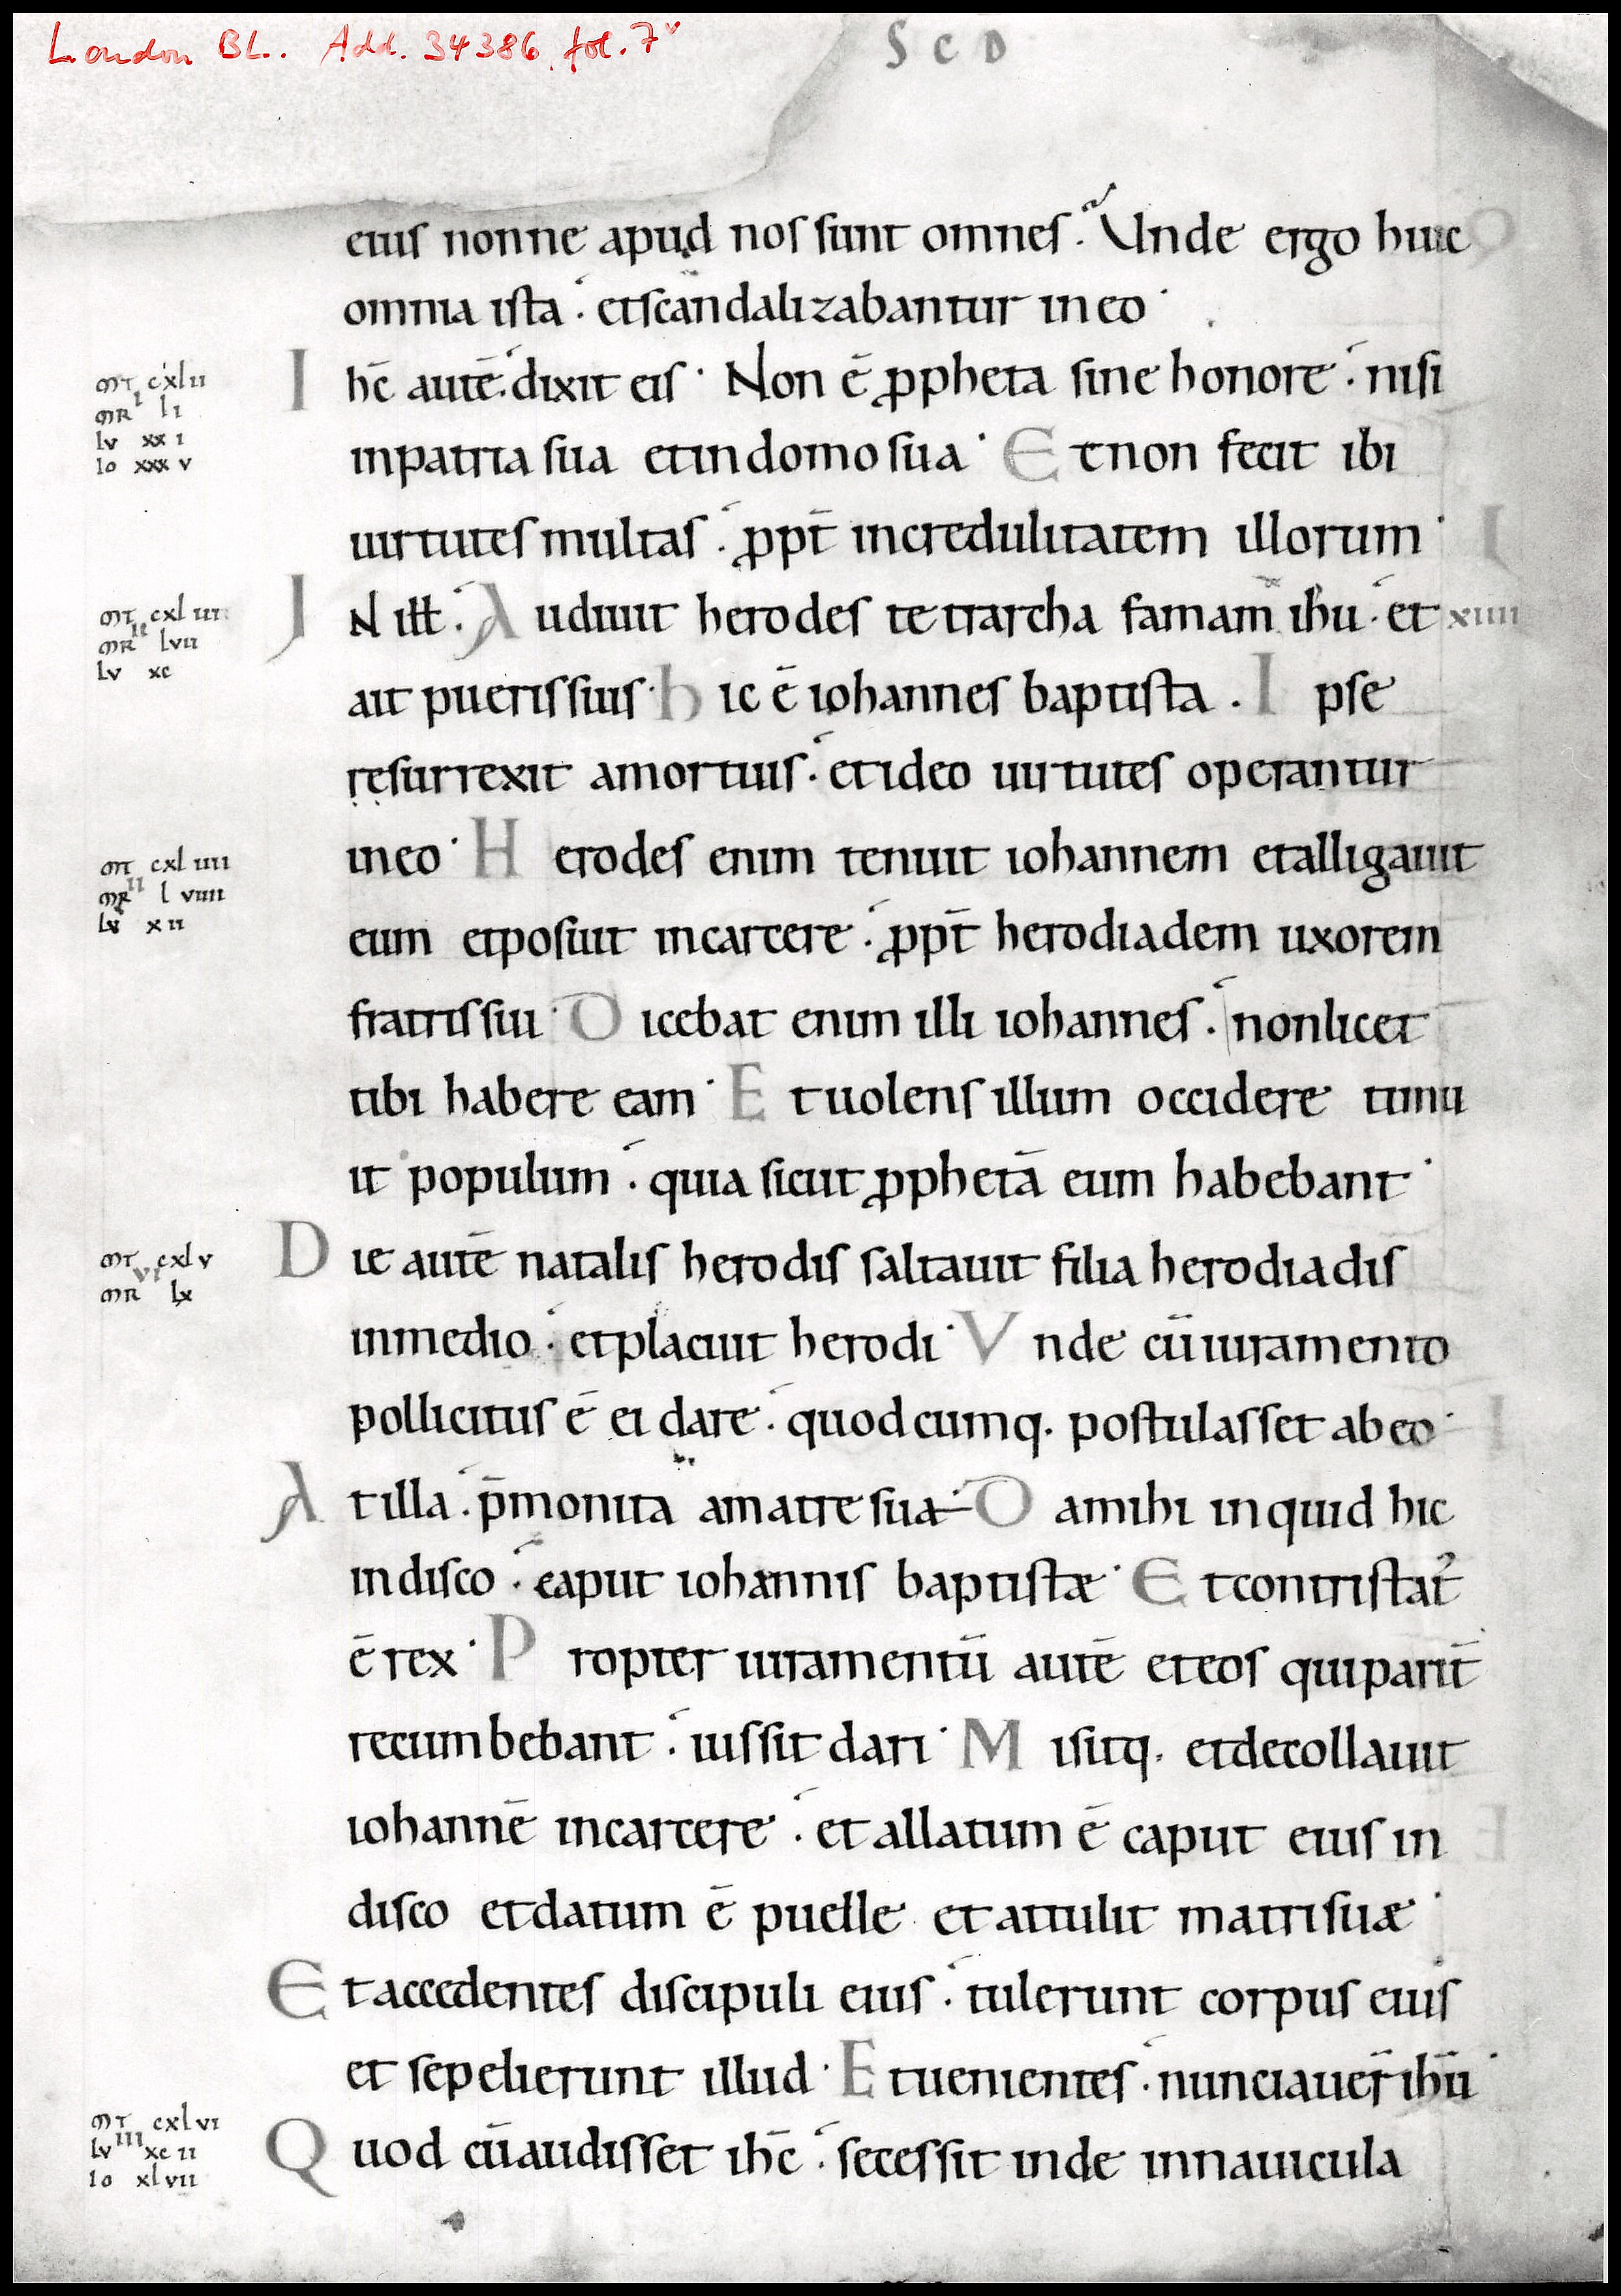 London BL. Add. 34386, fol. 7v
S C D
eius nonne apud nos sunt omnes. Unde ergo huic
omnia ista. et scandalizabantur in eo.
MT cxlii
MR I li
LV xxi
IO xxxv
I hc̄ autē. dixit eis. Non ē ꝓpheta sine honore. nisi
in patria sua et in domo sua. Et non fecit ibi
uirtutes multas. ꝓpt̄ incredulitatem illorum.
MT cxliii
MR II lvii
LV xc
IN iłł. Audiuit herodes tetrarcha famam ihu. et xiiii
ait pueris suis. hic ē iohannes baptista. Ipse
resurrexit a mortuis. et ideo uirtutes operantur
MT cxliiii
MR II lviiii
LV xii
in eo. Herodes enim tenuit iohannem et alligauit
eum et posuit in carcere. ꝓpt̄ herodiadem uxorem
fratris sui. Dicebat enim illi iohannes. non licet
tibi habere eam. Et uolens illum occidere timu
it populum. quia sicut ꝓphetā eum habebant.
MT cxlv
MR VI lx
Die autē natalis herodis saltauit filia herodiadis
in medio. et placuit herodi. Vnde cū iuramento
pollicitus ē ei dare. quodcumq. postulasset ab eo.
At illa. p̄monita a matre sua. Da mihi inquid hic
in disco. caput iohannis baptistæ. Et contristat᷒
ē rex. Propter iuramentū autē et eos qui parit̄
recumbebant. iussit dari. Misitq. et decollauit
iohannē in carcere. et allatum ē caput eius in
disco et datum ē puelle et attulit matri suæ.
Et accedentes discipuli eius. tulerunt corpus eius
et sepelierunt illud. Et uenientes. nunciauer̄ ihū.
MT cxlvi
LV III xcii
IO xlvii
Quod cū audisset ihc̄. secessit inde in nauicula